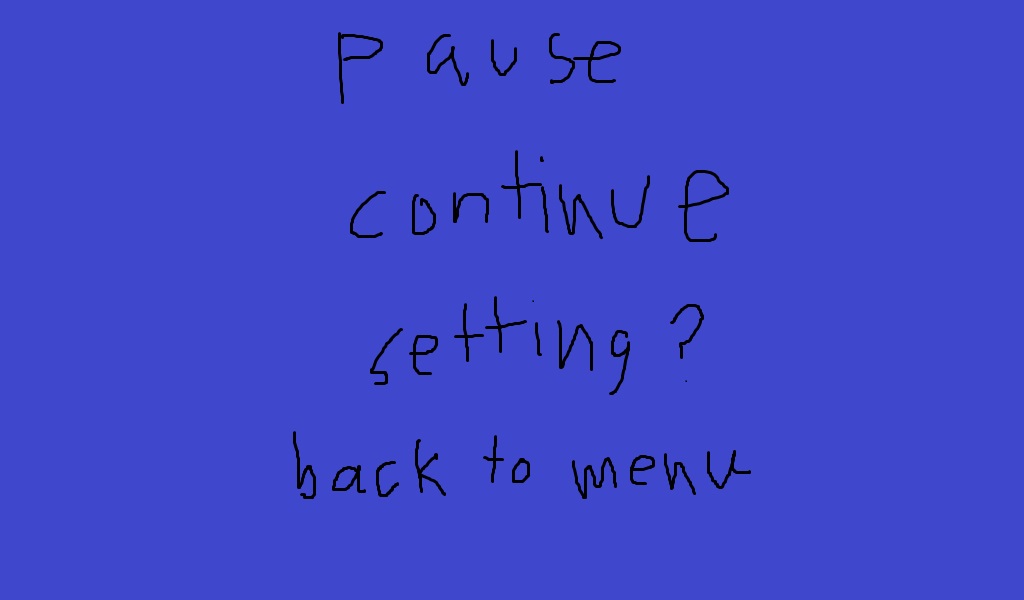 pause
continue
setting?
back to menu